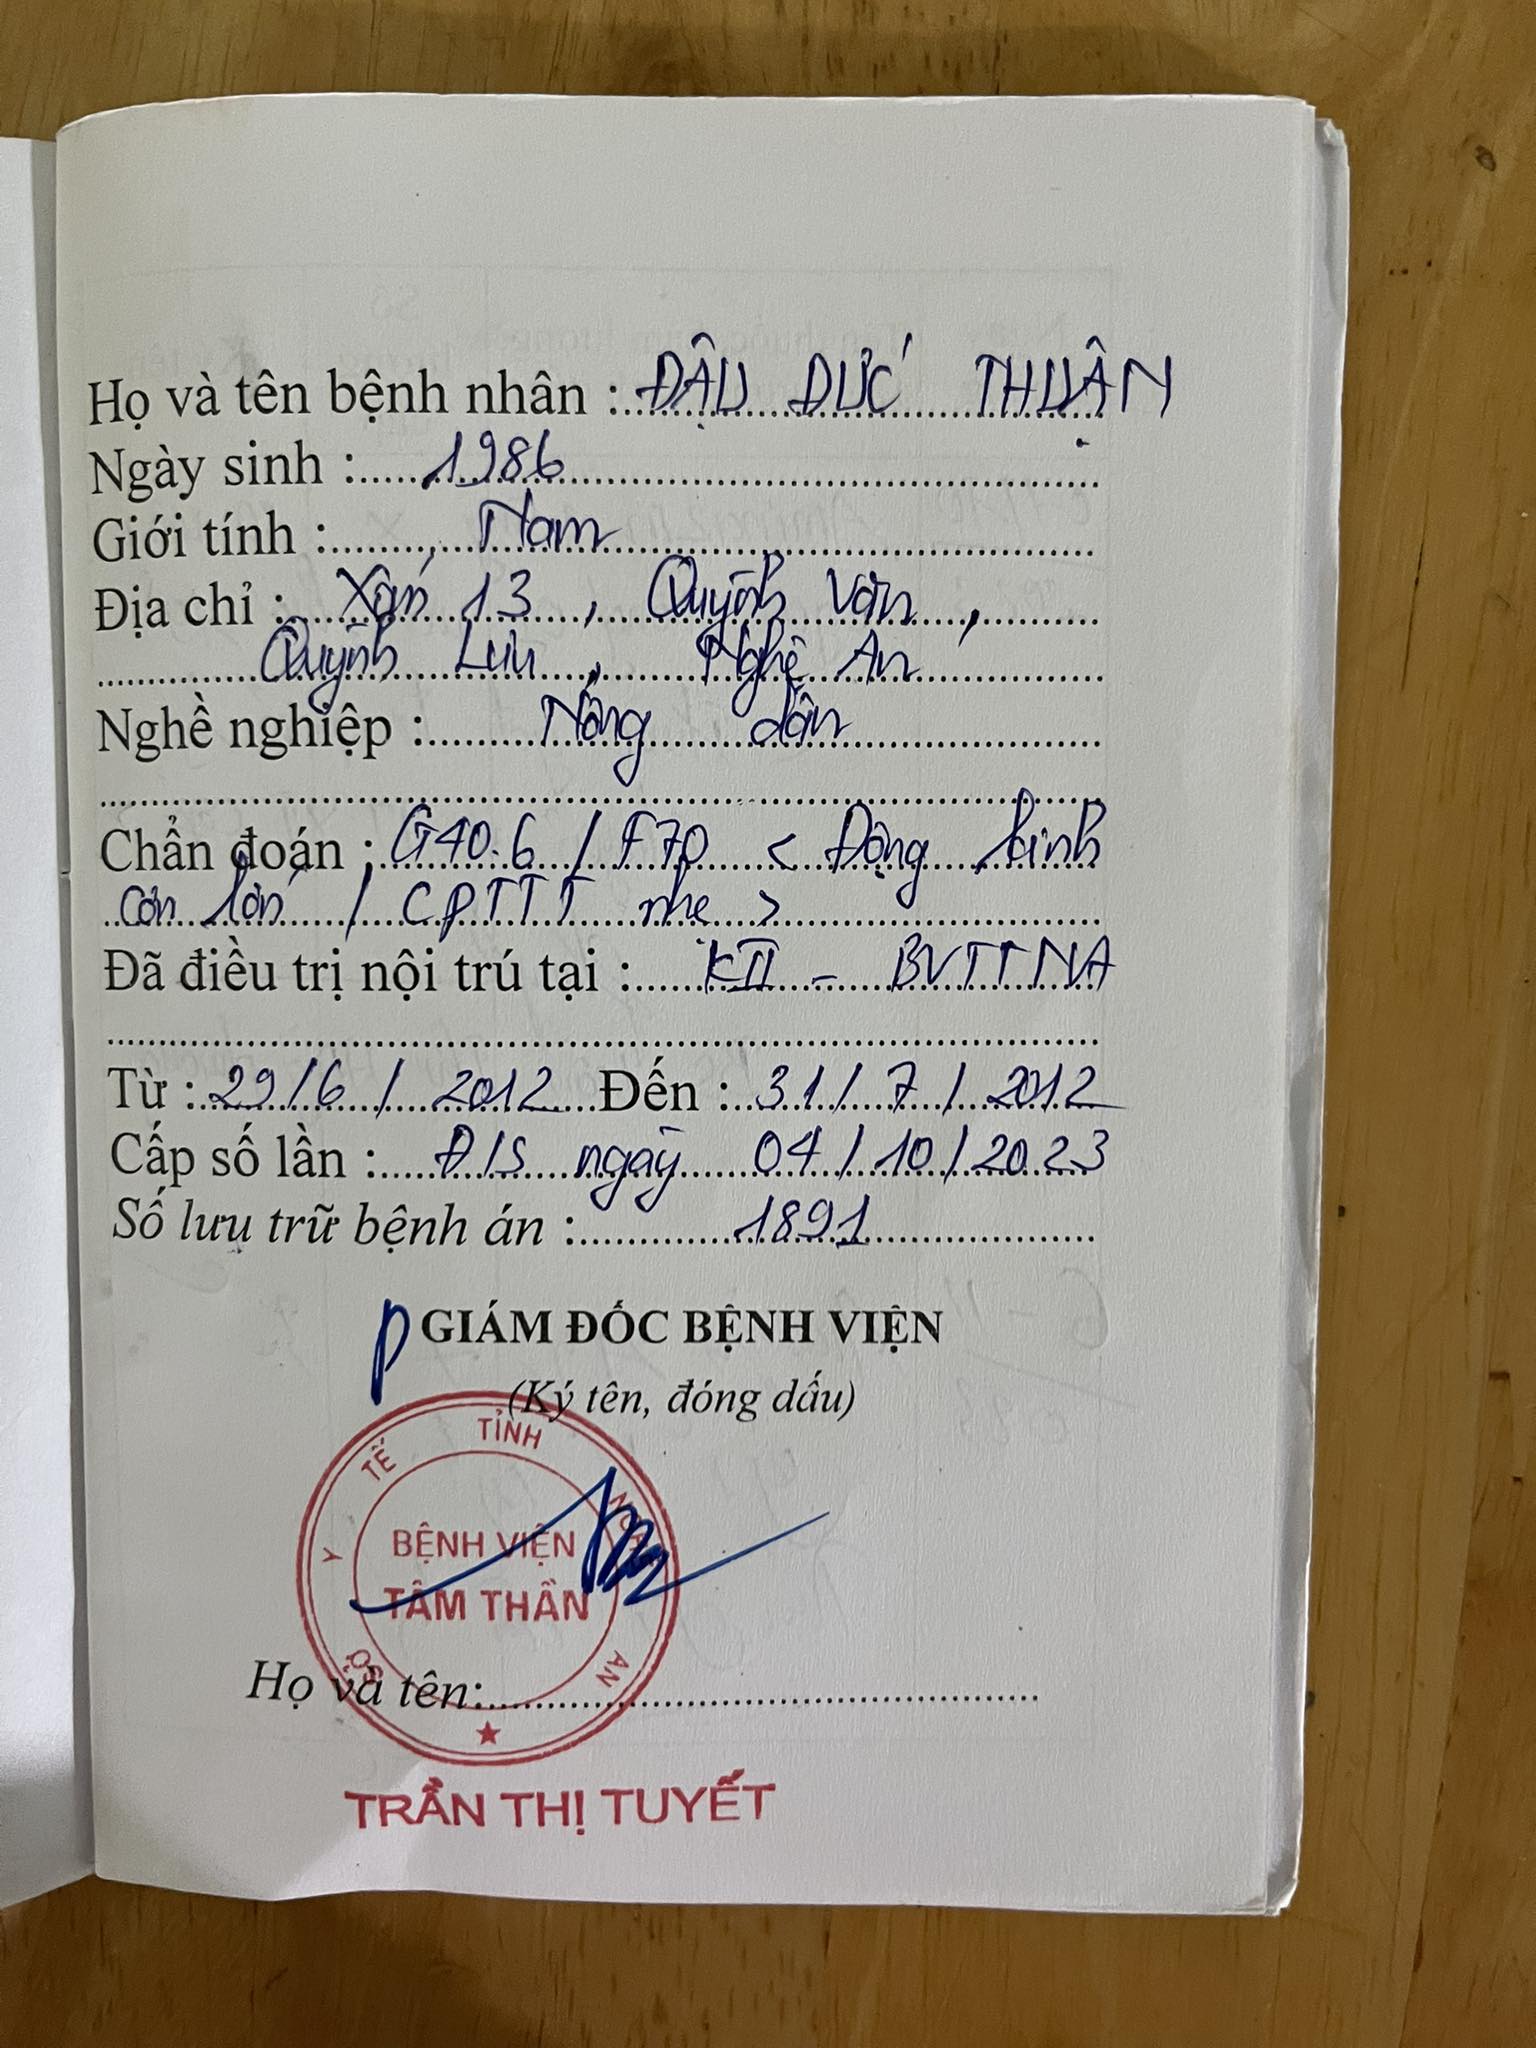 Họ và tên bệnh nhân : ĐẬU ĐỨC THUẬN
Ngày sinh : 1986
Giới tính : Nam
Địa chỉ : Xóm 13, Quỳnh Văn,
Quỳnh Lưu, Nghệ An
Nghề nghiệp : Nông dân
Chẩn đoán : G40.6 / F70 < Động kinh
cơn lớn / CPTTT nhẹ >
Đã điều trị nội trú tại : KII - BVTTNA
Từ : 29/6/2012 Đến : 31/7/2012
Cấp số lần : Đ/S ngày 04/10/2023
Số lưu trữ bệnh án : 1891
P GIÁM ĐỐC BỆNH VIỆN
(Ký tên, đóng dấu)
SỞ Y TẾ TỈNH NGHỆ AN
BỆNH VIỆN
TÂM THẦN
Họ và tên:
TRẦN THỊ TUYẾT